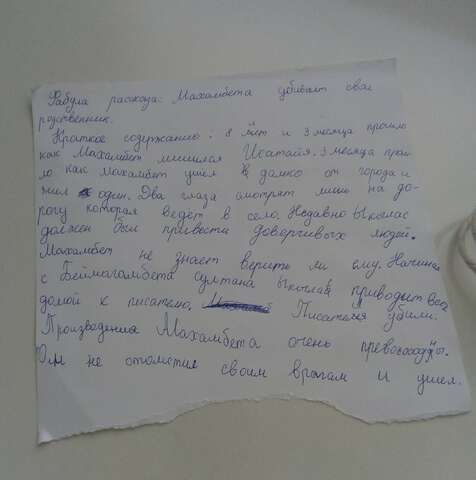 Фабула рассказа: Махамбета убивает свои
родственник.
Краткое содержание: 8 лет и 3 месяца прошло
как Махамбет лишился Исатайя. 3 месяца прош-
ло как махамбет ушел далеко от города и
жил один. Два глаза смотрят лишь на до-
рогу которая ведёт в село. Недавно Ыкылас
должен был привести доверчивых людей.
Махамбет не знает верить ли ему. Начиная
с Баймагамбета султана Ыкылас приводит всех
домой к писателю. Писателя убили.
Произведения Махамбета очень превосходны.
Он не отомстил своим врагам и ушел.